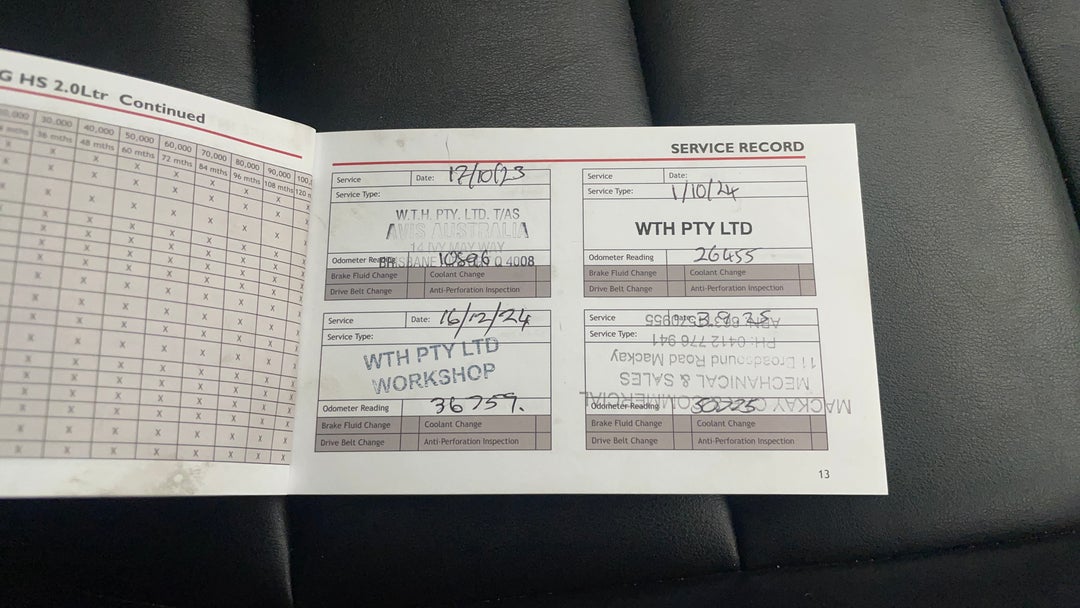 G HS 2.0Ltr Continued
30,000 40,000 50,000 60,000 70,000 80,000 90,000 100,
36 mths 48 mths 60 mths 72 mths 84 mths 96 mths 108 mths 120
SERVICE RECORD
Service Date: 17/10/23
Service Type:
W.T.H. PTY. LTD. T/AS
AVIS AUSTRALIA
14 IVY MAY WAY
BRISBANE Q 4008
Odometer Reading 10896
Brake Fluid Change Coolant Change
Drive Belt Change Anti-Perforation Inspection
Service Date:
Service Type: 1/10/24
WTH PTY LTD
Odometer Reading 26455
Brake Fluid Change Coolant Change
Drive Belt Change Anti-Perforation Inspection
Service Date: 16/12/24
Service Type:
WTH PTY LTD
WORKSHOP
Odometer Reading 36759.
Brake Fluid Change Coolant Change
Drive Belt Change Anti-Perforation Inspection
Service Date: 3.9.25
Service Type:
MACKAY COMMERCIAL
MECHANICAL & SALES
11 Broadsound Road Mackay
PH: 0412 776 941
ABN
Odometer Reading
Brake Fluid Change Coolant Change
Drive Belt Change Anti-Perforation Inspection
13